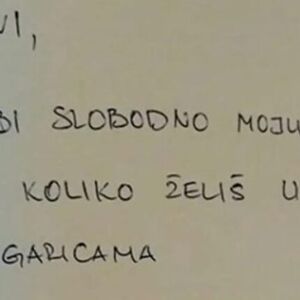 BI SLOBODNO MOJU
KOLIKO ŽELIŠ U
GARICAMA